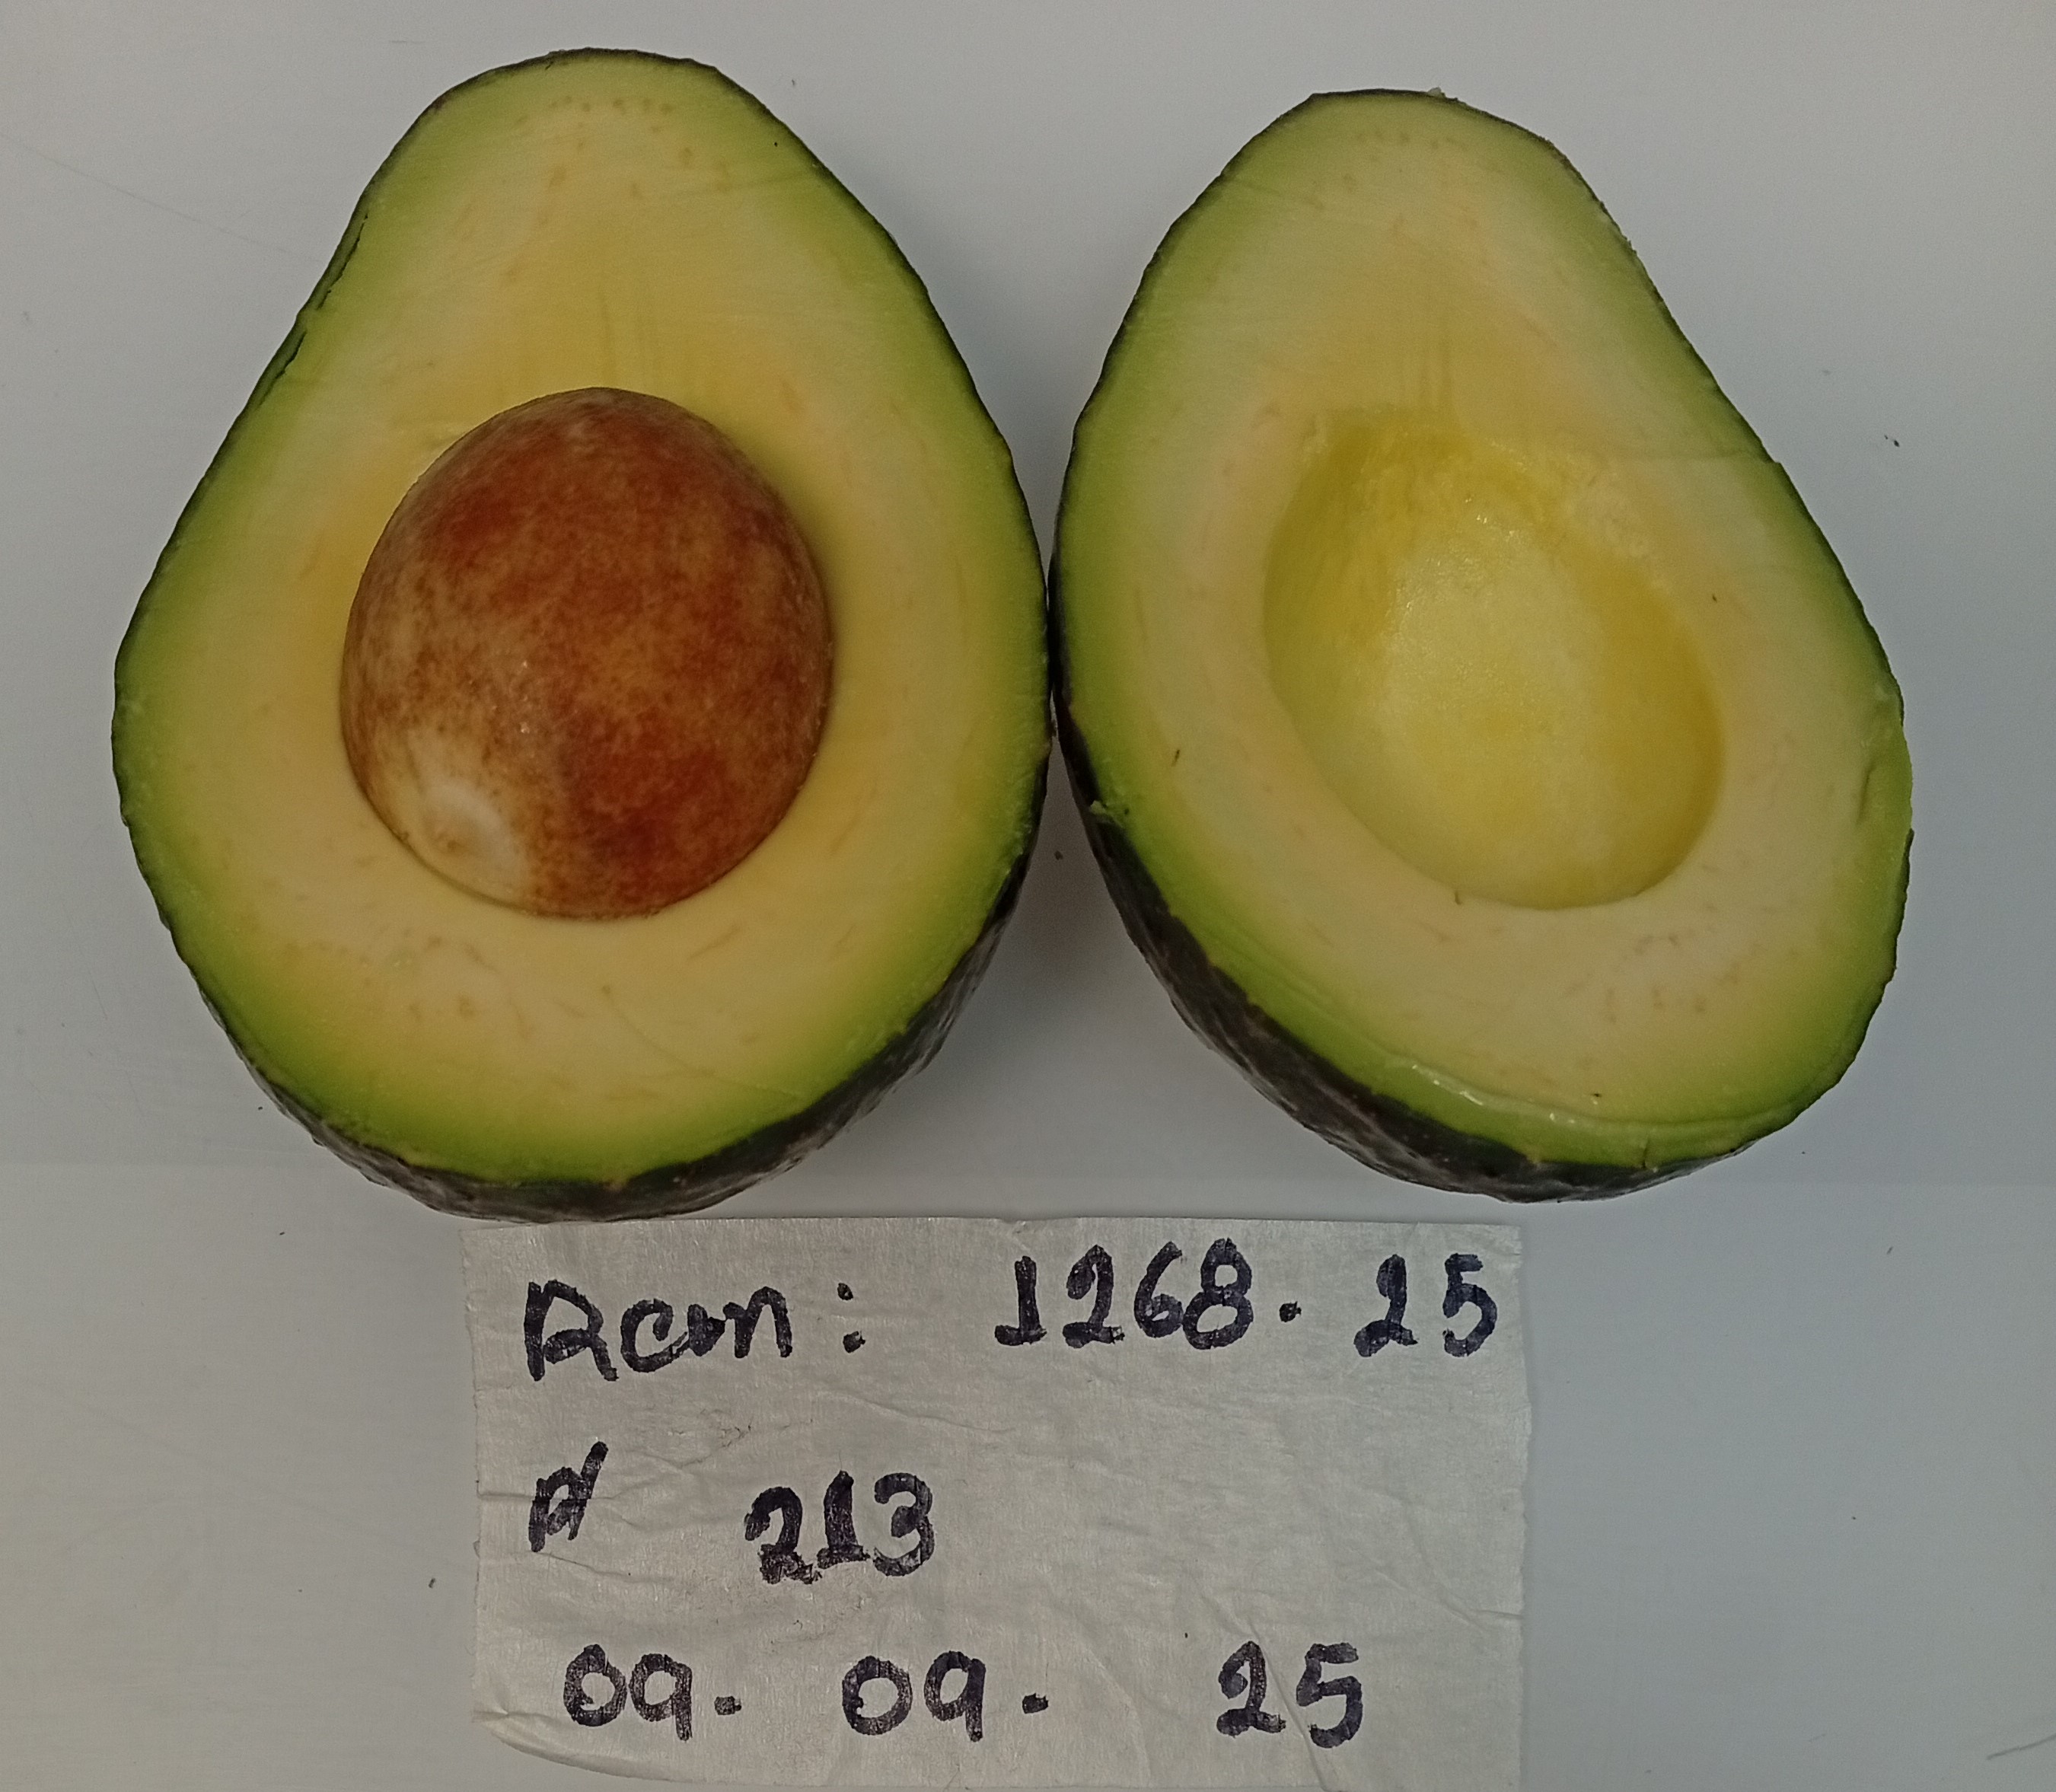 Rcm: 1268. 25
# 213
09. 09. 25